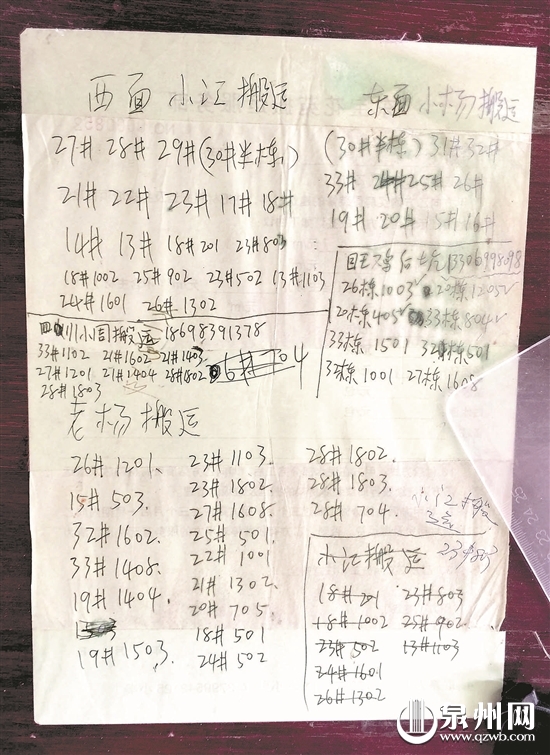 西面 小江 搬运
27# 28# 29#(30#半栋)
21# 22# 23# 17# 18#
14# 13# 18#201 23#803
18#1002 25#902 23#502 13#1103
24#1601 26#1302
东面 小杨 搬运
(30#半栋) 31# 32#
33# 24# 25# 26#
19# 20# 15# 16#
13306998098
26栋1003√ 20栋1205√
20栋405√ 33栋804√
33栋1501 32栋501
32栋1001 27栋1608
川小周搬运 18698391378
33#1102 21#1602 21#1403
27#1201 21#1404 28#1802
28#1803
老杨搬运
26#1201.
15#503.
32#1602.
33#1408.
19#1404.
19#1503.
23#1103.
23#1802.
27#1608.
25#501.
22#1001
21#1302.
20#705.
18#501
24#502
28#1802.
28#1803.
28#704.
小江搬运
23#803
小江搬运
18#201 23#803
18#1002 25#902
23#502 13#1103
24#1601
26#1302
泉州网
www.qzwb.com